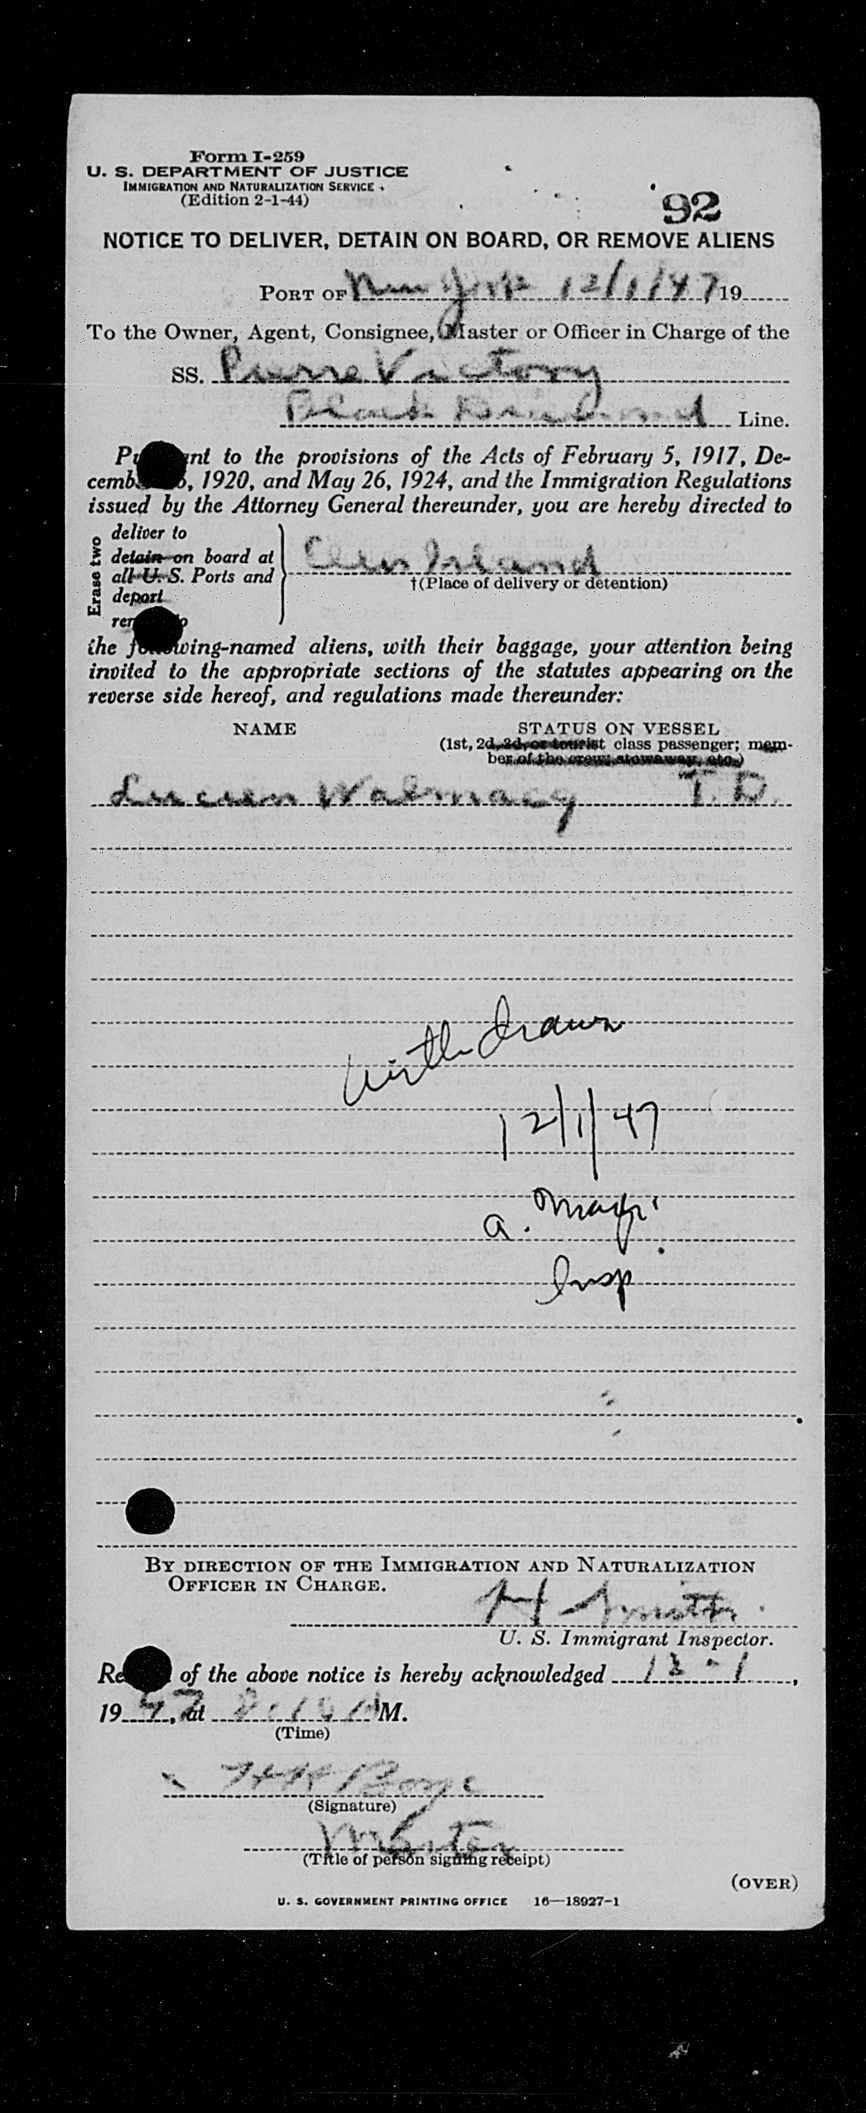 Form I-259
U. S. DEPARTMENT OF JUSTICE
IMMIGRATION AND NATURALIZATION SERVICE
(Edition 2-1-44)
92
NOTICE TO DELIVER, DETAIN ON BOARD, OR REMOVE ALIENS
PORT OF New York 12/1/47, 19
To the Owner, Agent, Consignee, Master or Officer in Charge of the
SS. Pierre Victory
Black Diamond Line.
Pu nt to the provisions of the Acts of February 5, 1917, De-
cemb , 1920, and May 26, 1924, and the Immigration Regulations
issued by the Attorney General thereunder, you are hereby directed to
Erase two
deliver to
detain on board at
all U. S. Ports and
deport
rem o
Ellis Island
†(Place of delivery or detention)
the following-named aliens, with their baggage, your attention being
invited to the appropriate sections of the statutes appearing on the
reverse side hereof, and regulations made thereunder:
NAME STATUS ON VESSEL
(1st, 2d, 3d, or tourist class passenger; mem-
ber of the crew; stowaway, etc.)
Lucien Walmacq T. D.
Withdrawn
12/1/47
a.
Insp
BY DIRECTION OF THE IMMIGRATION AND NATURALIZATION
OFFICER IN CHARGE.
H Smith
U. S. Immigrant Inspector.
Re of the above notice is hereby acknowledged 12-1,
19 47, at AM.
(Time)
(Signature)
Master
(Title of person signing receipt)
(OVER)
U. S. GOVERNMENT PRINTING OFFICE 16—18927-1